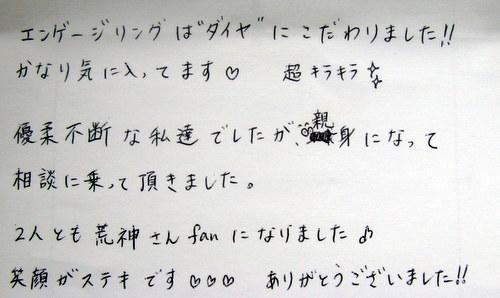 エンゲージリングは"ダイヤ"にこだわりました!!
かなり気に入ってます♡ 超キラキラ✨
優柔不断な私達でしたが、親身になって
相談に乗って頂きました。
2人とも荒神さんfanになりました♪
笑顔がステキです♡♡♡ ありがとうございました!!